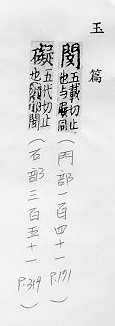 玉篇
閡五載切止也与礙同(門部一百四十一 P.191)
礙五代切止也閡(石部三百五十一 P.319)